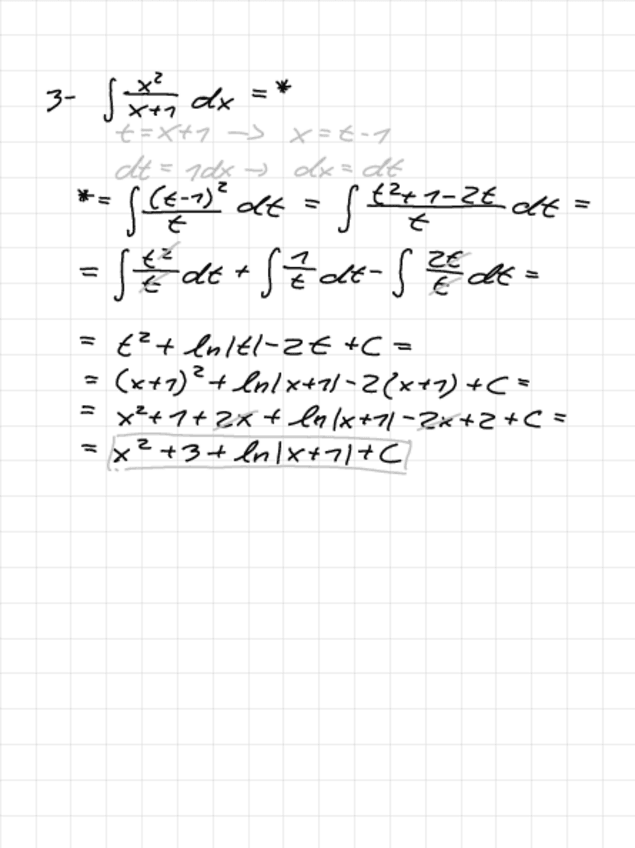 3- ∫ x²/(x+1) dx = *
t = x+1 → x = t-1
dt = 1dx → dx = dt
* = ∫ (t-1)²/t dt = ∫ (t²+1-2t)/t dt =
= ∫ t²/t dt + ∫ 1/t dt - ∫ 2t/t dt =
= t² + ln|t| - 2t + C =
= (x+1)² + ln|x+1| - 2(x+1) + C =
= x² + 1 + 2x + ln|x+1| - 2x + 2 + C =
= x² + 3 + ln|x+1| + C